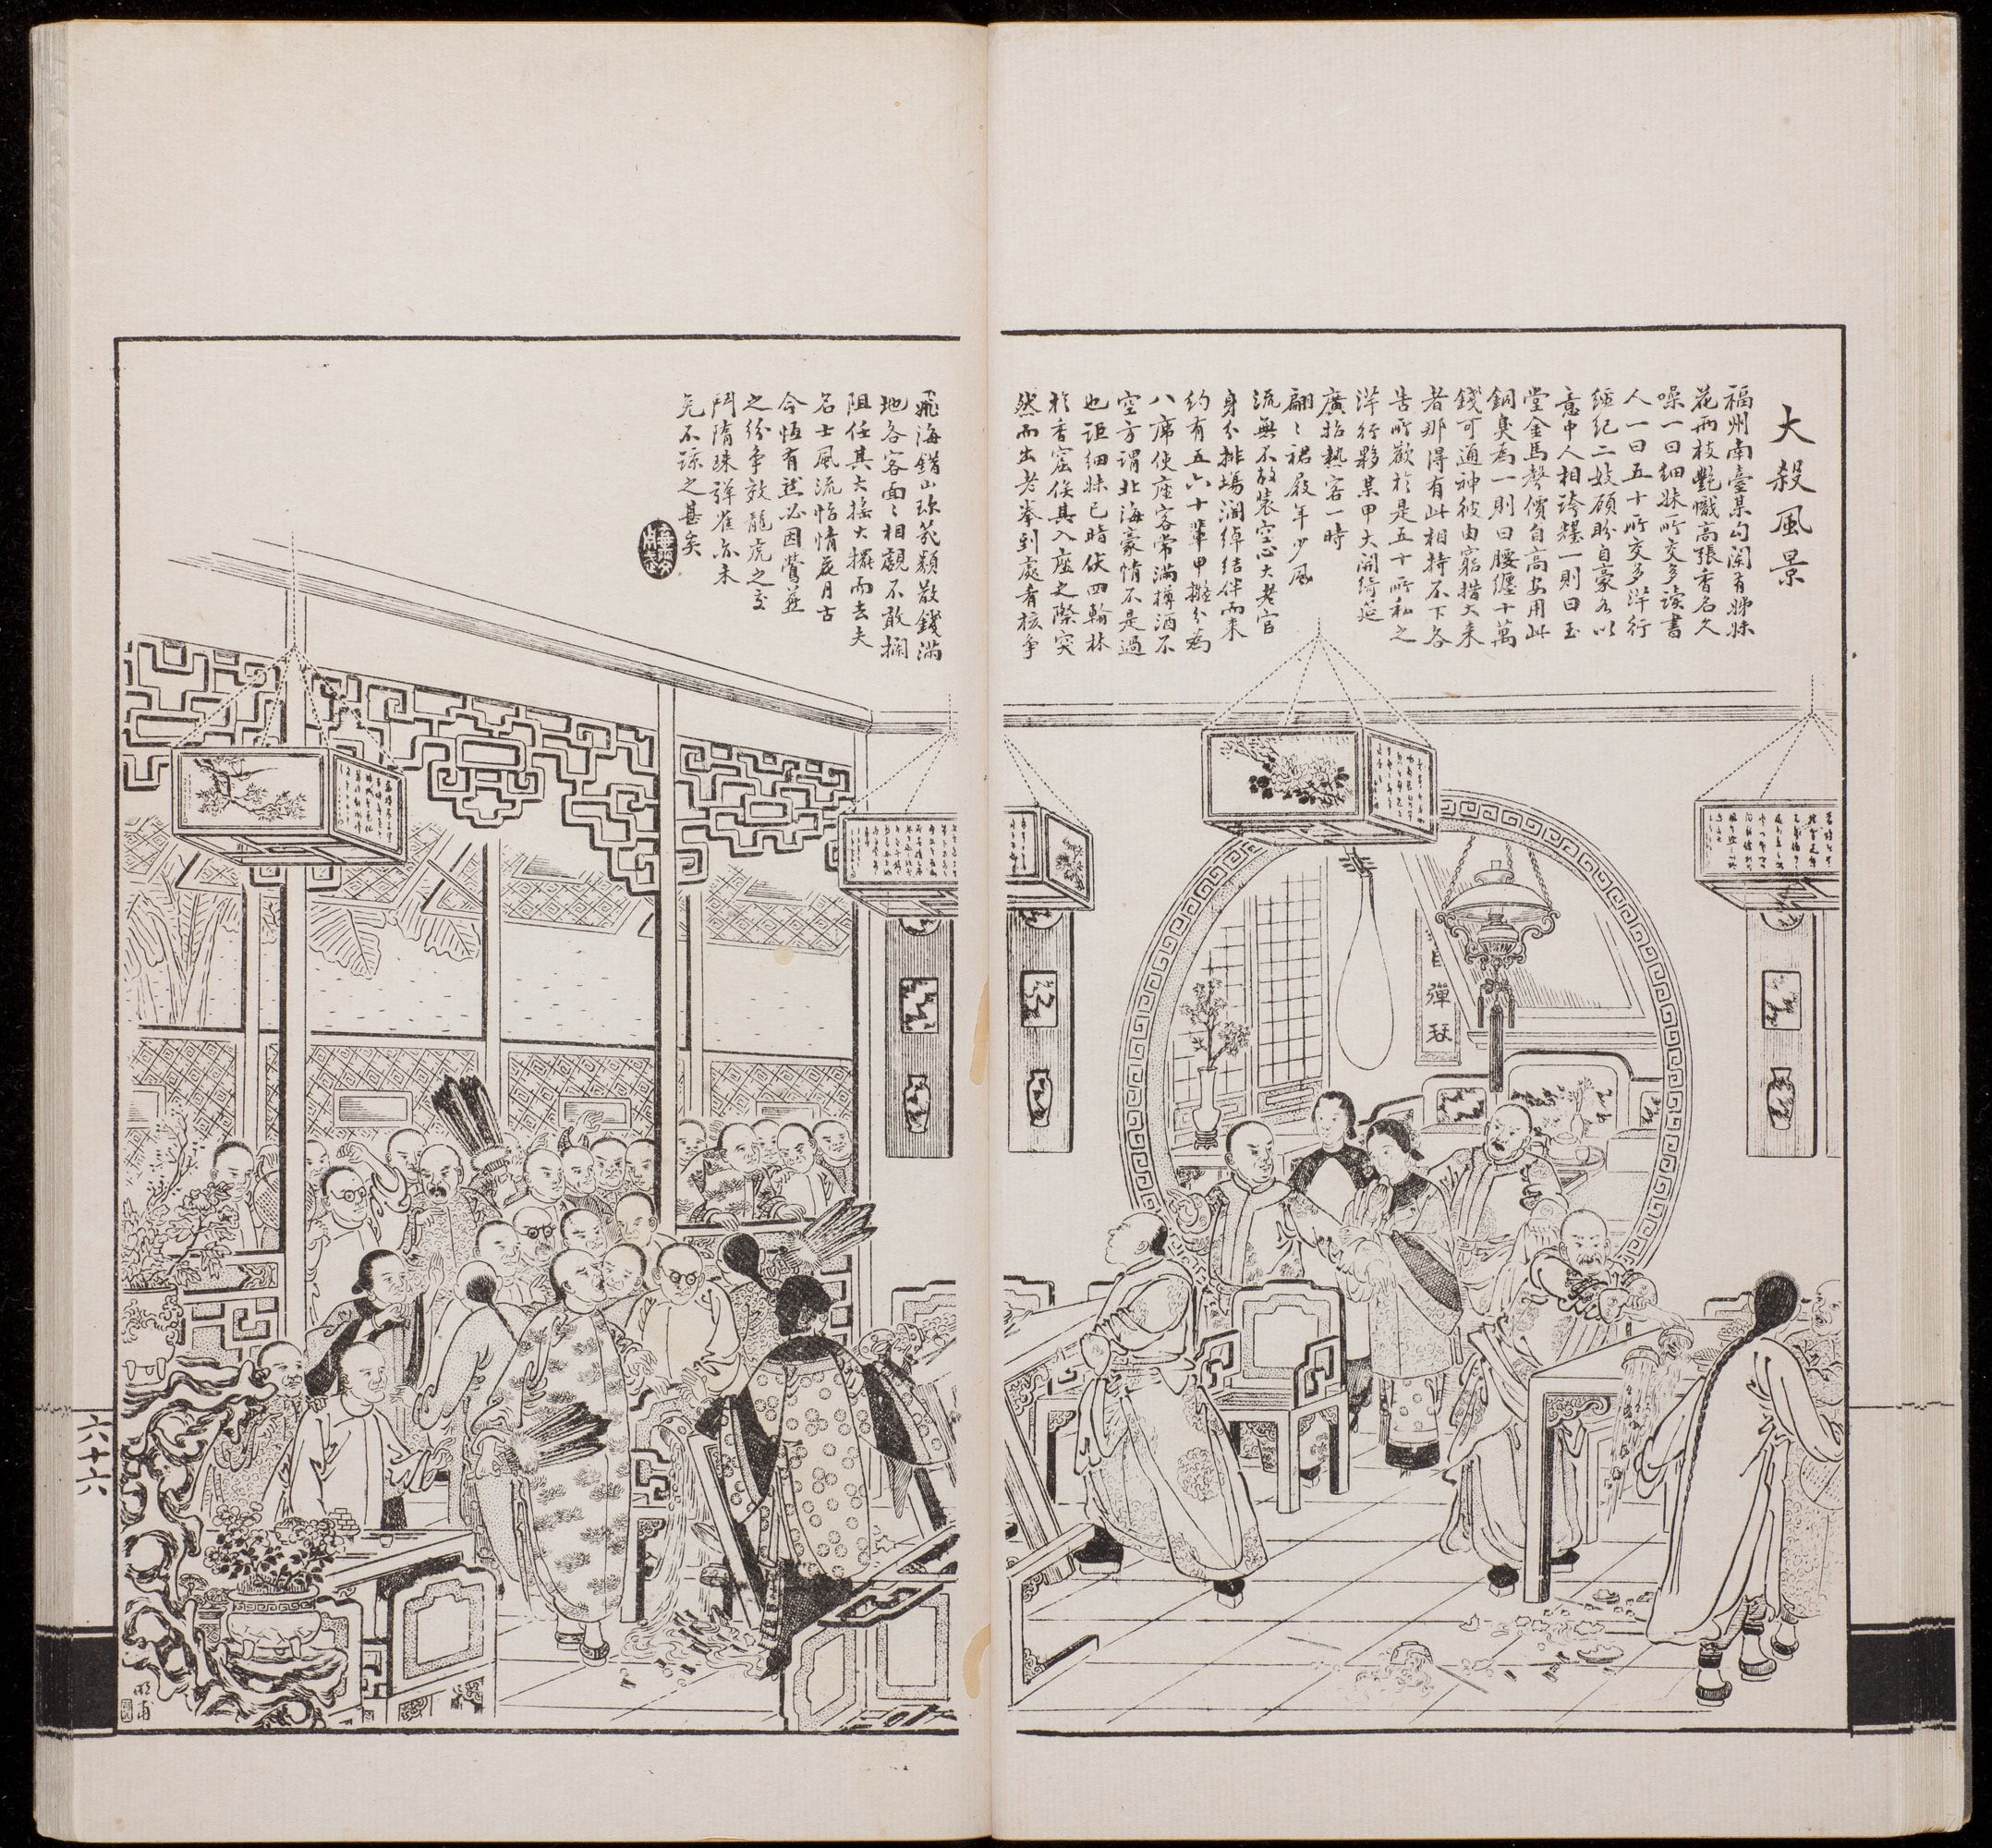 大殺風景
福州南臺某勾闌有姊妹
花兩枝艷幟高張香名久
噪一曰細妹所交多讀書
人一曰五十所交多洋行
經紀二妓顧盼自豪各以
意中人相誇耀一則曰玉
堂金馬聲價自高安用此
銅臭為一則曰腰纏十萬
錢可通神彼由窮措大來
者那得有此相持不下各
告所歡於是五十所私之
洋行夥某甲大開綺筵
廣招熱客一時
翩〻裙屐年少風
流無不放裝空心大老官
身分排場濶綽結伴而來
約有五六十輩甲擬分為
八席使座客常滿樽酒不
空方謂北海豪情不是過
也詎細妹已暗伏四翰林
於香窟俟其入座之際突
然而出老拳到處肴核爭
飛海錯山珍荒類散錢滿
地各客面〻相覷不敢攔
阻任其大搖大擺而去夫
名士風流怡情花月古
今恒有然必因鶯燕
之紛爭效龍虎之交
鬥隋珠彈雀亦未
免不諒之甚矣
自彈琴
六十六
明甫